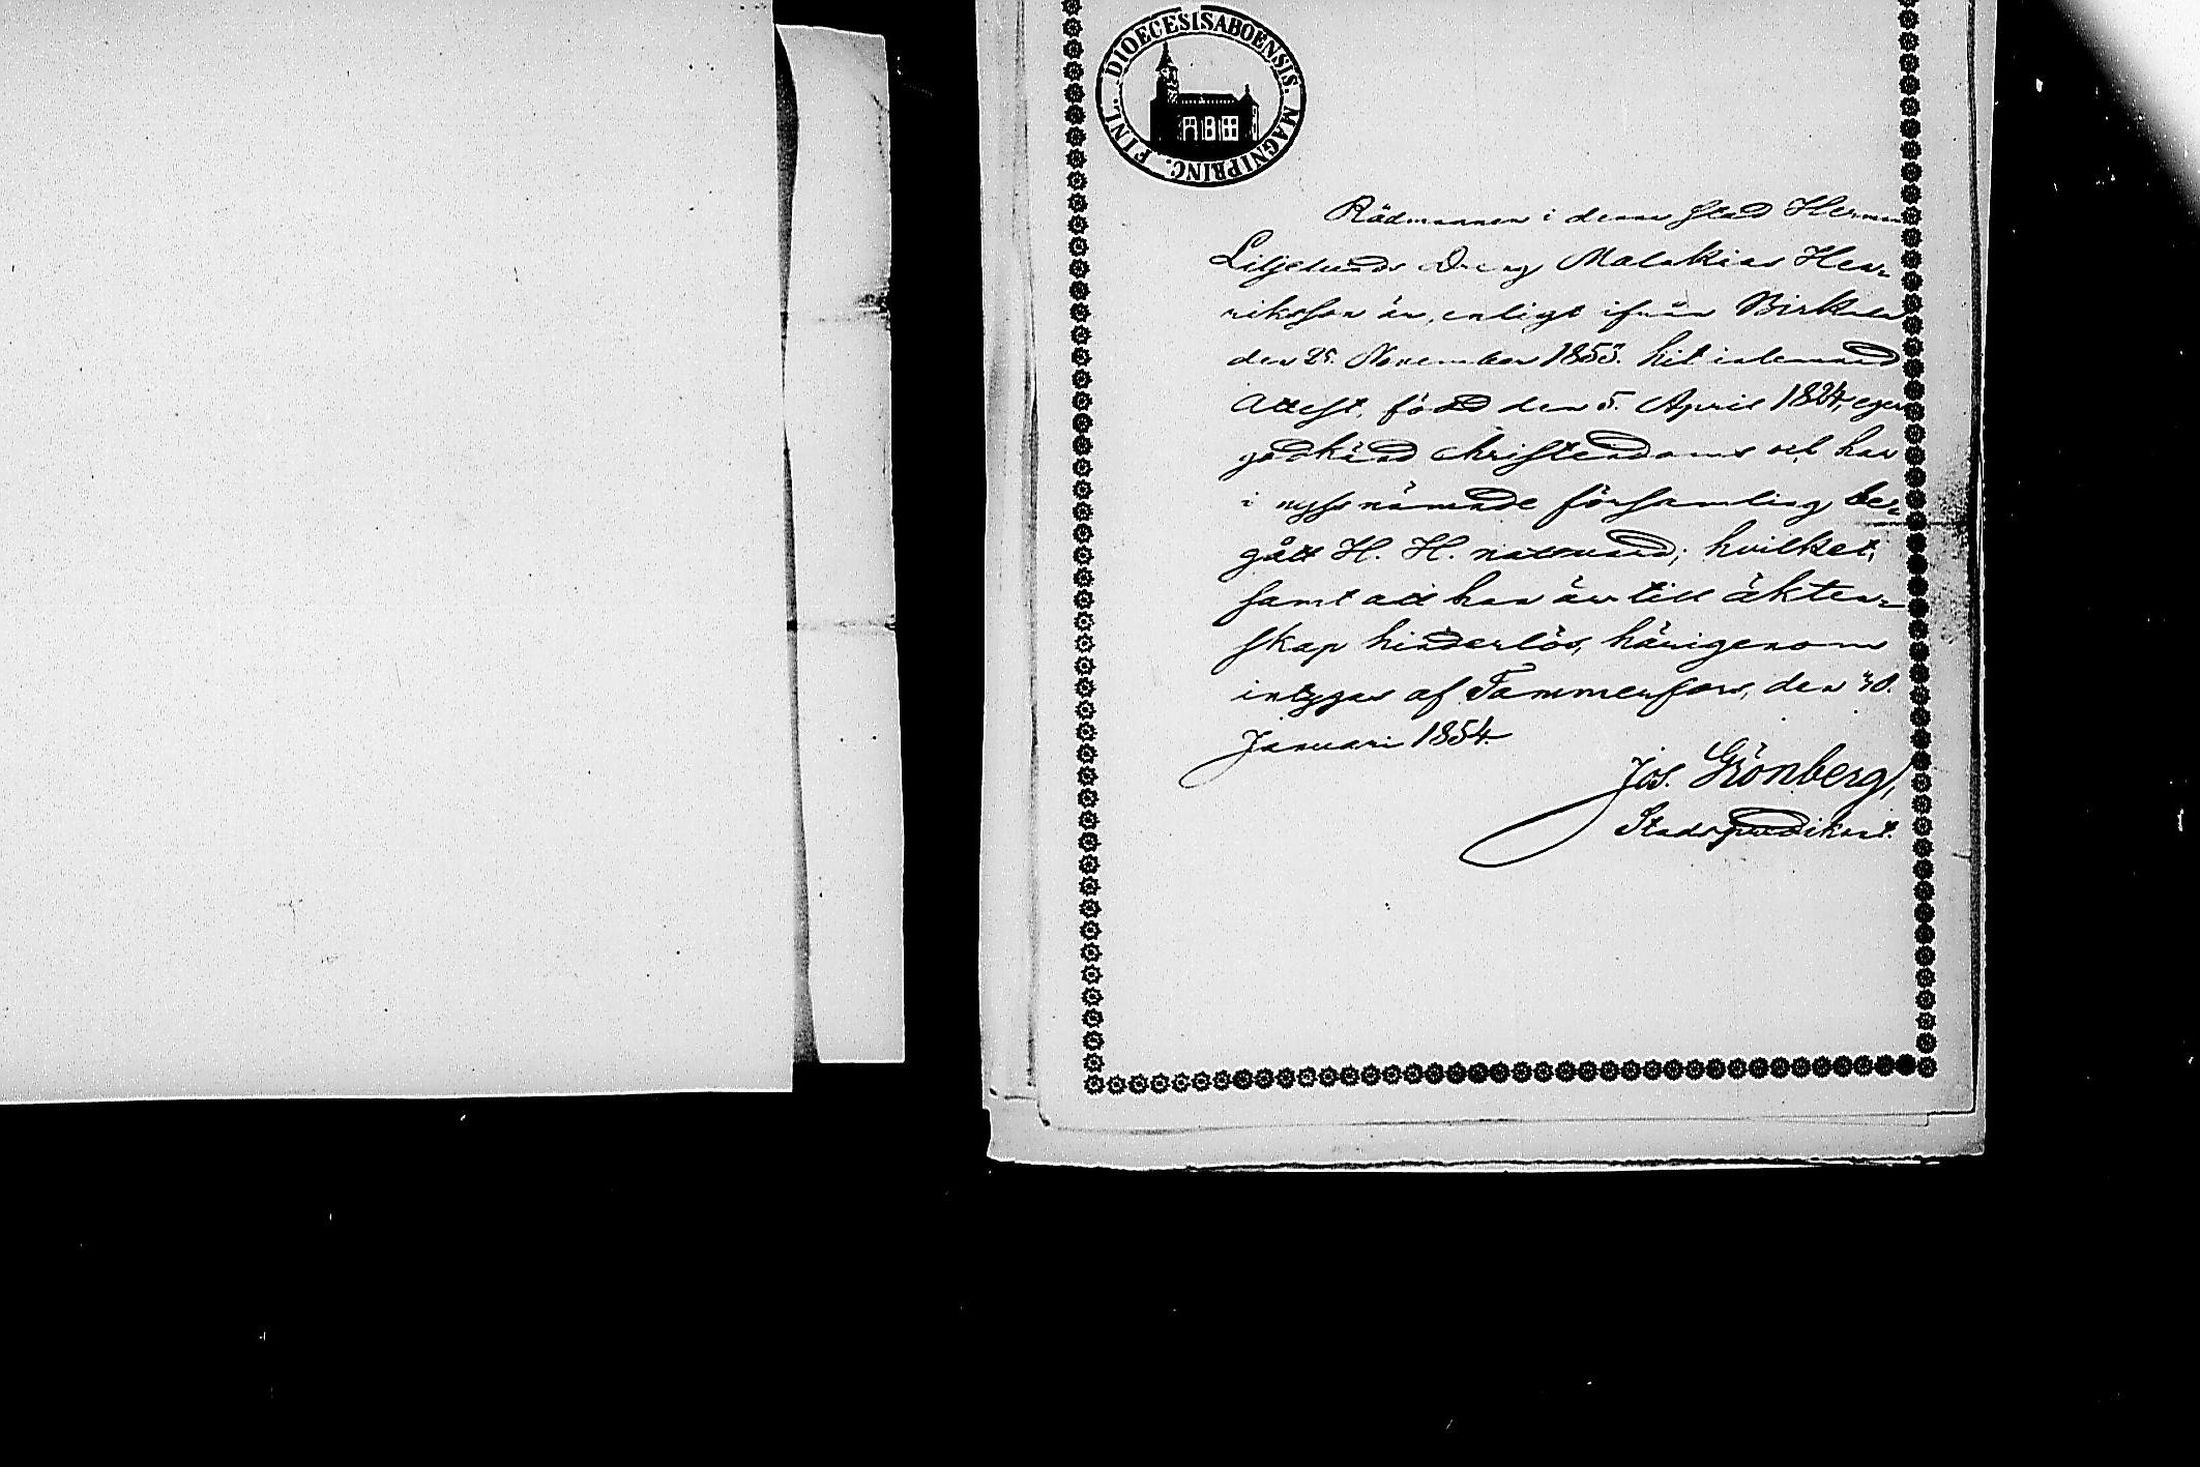 DIOECESIS ABOENSIS. MAGNI PRINC. FINL.
Rådmannen i denna stad Herman
Liljelunds Dreng Malakias Hen-
riksson är, enligt ifrån Birkala
den 25. November 1853. hit inlemnad
Attest, född den 5. April 1824, eger
godkänd christendoms och har
i nyssnämnde församling be-
gått H. H. nattvard; hvilket,
samt att han är till äkten-
skap hinderlös, härigenom
intygas af Tammerfors, den 30.
Januari 1854.
Jos. Grönberg,
Stadspredikant.